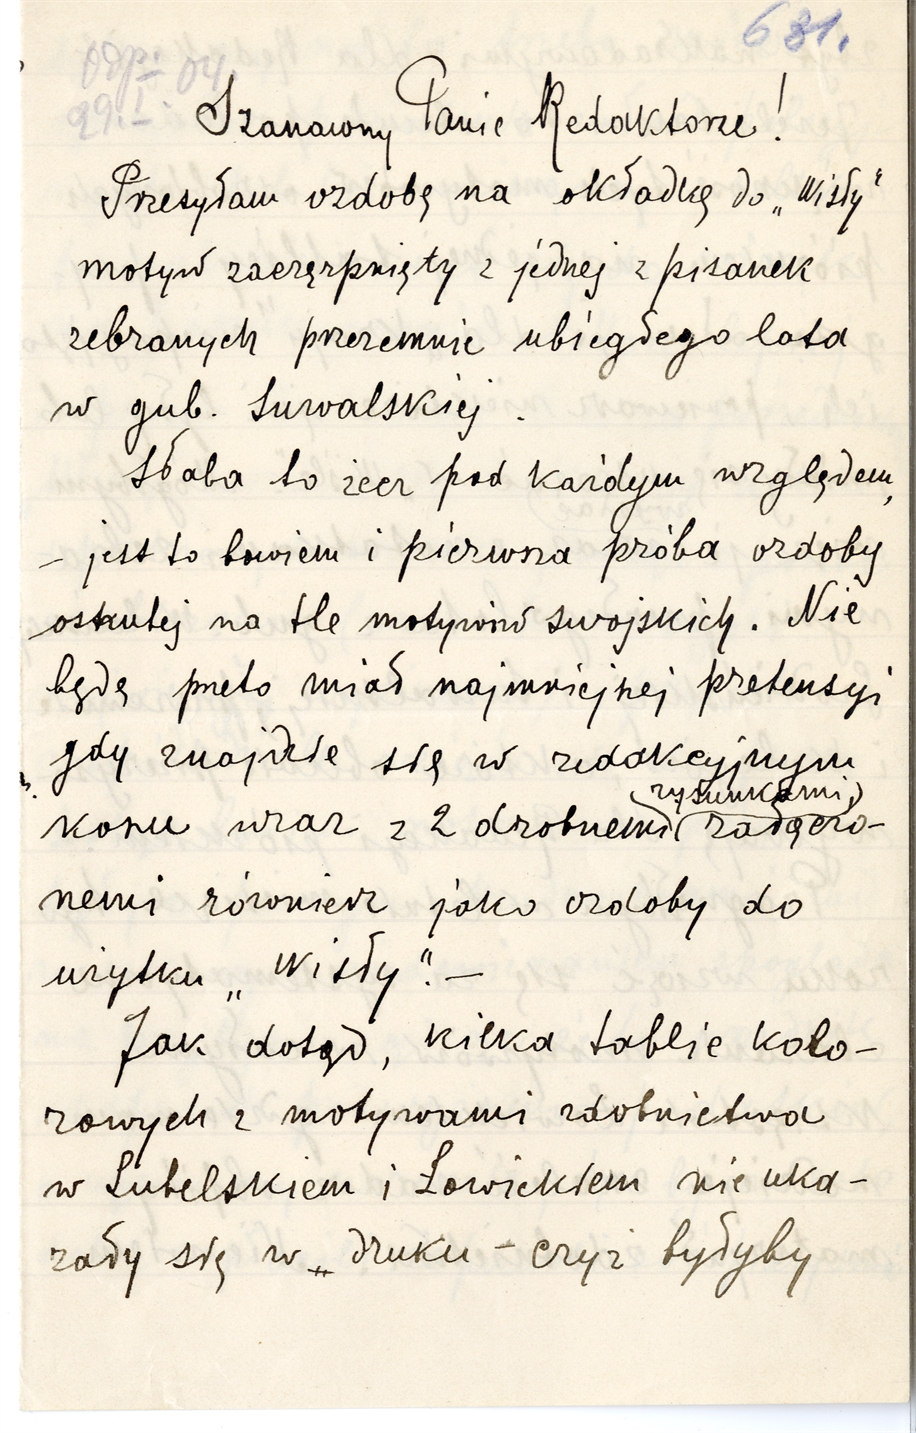 631.
odp. 04.
29.I.
Szanowny Panie Redaktorze!
Przesyłam ozdobę na okładkę do „Wisły"
motyw zaczerpnięty z jednej z pisanek
zebranych przezemnie ubiegłego lata
w gub. Suwalskiej.
Słaba to rzecz pod każdym względem,
– jest to bowiem i pierwsza próba ozdoby
osnutej na tle motywów swojskich. Nie
będę przeto miał najmniejszej pretensyi
gdy znajdzie się w redakcyjnym
rysunkami,
koszu wraz z 2 drobnemi załączo-
nemi również jako ozdoby do
użytku „Wisły". –
Jak dotąd, kilka tablic kolo-
rowych z motywami zdobnictwa
w Lubelskiem i Łowickiem nie uka-
zały się w „ druku – czyż byłyby